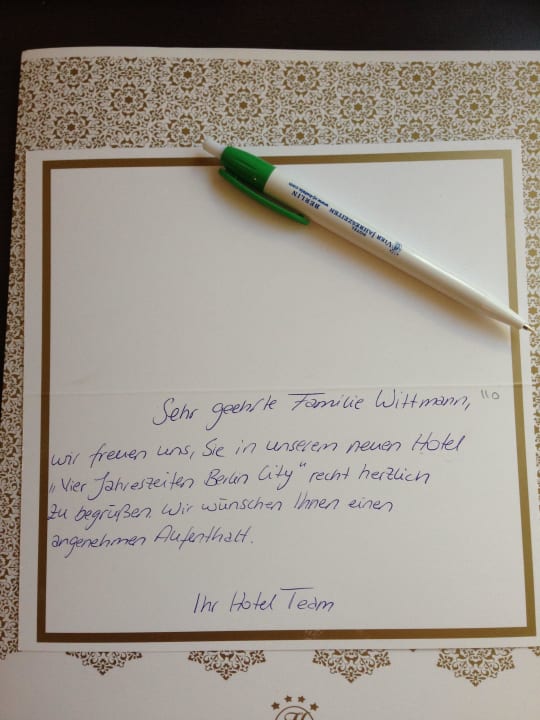 HOTEL
VIER JAHRESZEITEN
BERLIN
Sehr geehrte Familie Wittmann,
110
wir freuen uns, Sie in unserem neuen Hotel
„Vier Jahreszeiten Berlin City" recht herzlich
zu begrüßen. Wir wünschen Ihnen einen
angenehmen Aufenthalt.
Ihr Hotel Team